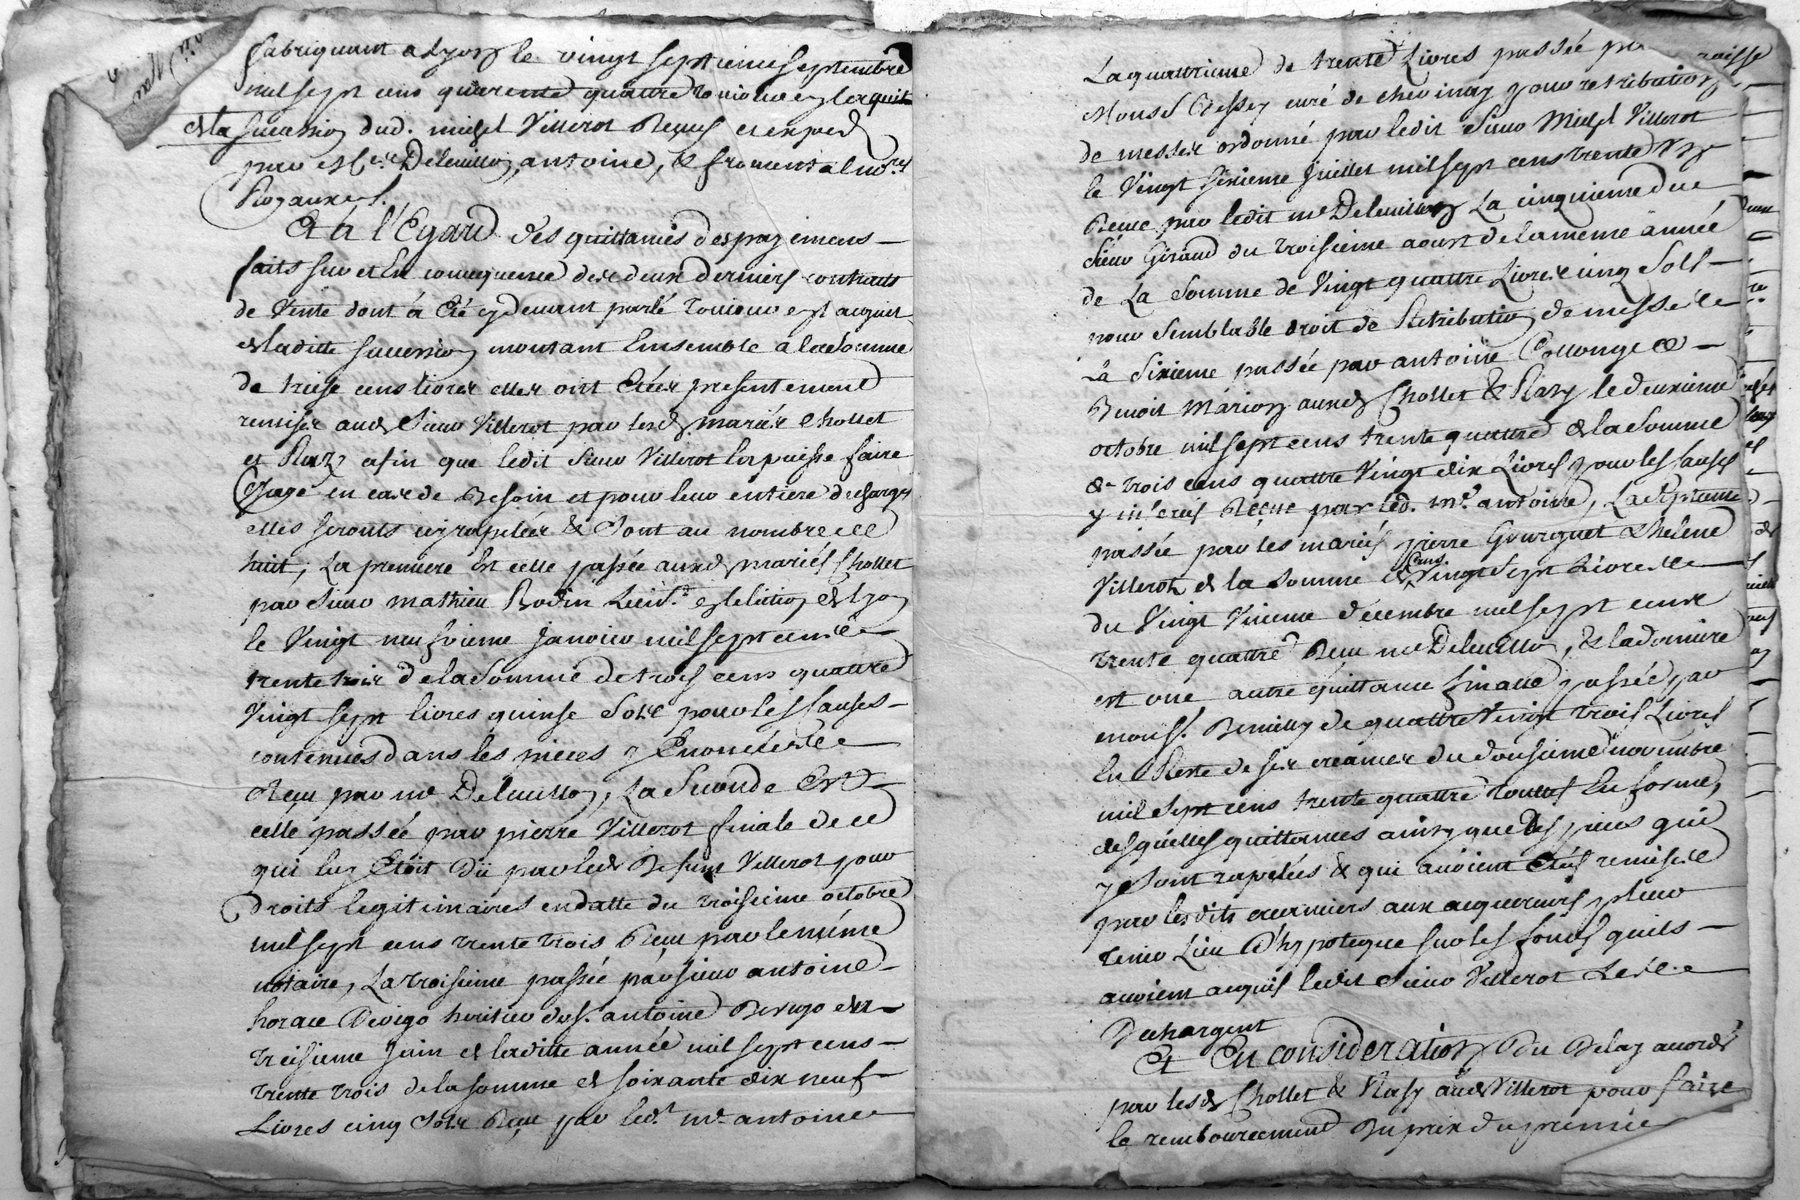 fabriquant a Lyon le vingt septieme septembre
mil sept cens quarente quattre
de la succession dud. michel Villerot Receus et exped
par Delavillon, antoine, & froment
Royaux.
Et à l'Egard des quittances des payemens
faits sur et En consequence desd deux derniers contrats
de Vente dont à été cydevant parlé
de laditte succession montant Ensemble à la somme
de treise cens livres elles ont étées presentement
remises aud Sieur Villerot par lesd mariés Chollet
et Razy afin que ledit Sieur Villerot en puisse faire
Usage en cas de Besoin et pour leur entiere descharge
elles seronts icy rapelées & Sont au nombre de
huit, La premiere Est celle passée auxd mariés Chollet
par Sieur mathieu Bodin en l'election de Lyon
le Vingt neufvieme janvier mil sept cens
trente trois de la Somme de trois cens quattre
Vingt sept livres quinse Sols pour les causes
contenues dans les pieces y Enoncées
Reçu par me Delavillon, La Seconde Est
celle passée par pierre Villerot finale de ce
qui luy Etoit Dû par led Defunt Villerot pour
Droits legitimaires en datte du troisieme octobre
mil sept cens trente trois Reçu par le même
notaire, La troisieme passée par sieur antoine
horace Devigo heritier du sr. antoine Devigo du
treisieme juin de laditte année mil sept cens
trente trois de la somme de soixante dix neuf
Livres cinq sols Reçu par led.t me antoine
La quattrieme de trente Livres passée par
Monsr. Bessey curé de chevinay pour retribution
de messes ordonné par ledit Sieur Michel Villerot
le Vingt sixieme juillet mil sept cens trente
Receue par ledit me Delavillon La cinquieme du
Sieur Giraud du troisieme aoust de la meme année
de La Somme de Vingt quattre Livres cinq Sols
pour Semblable droit de Retribution de messe
La Sixieme passée par antoine Collonge &
Benoit Marion auxd Chollet & Razy le deuxieme
octobre mil sept cens trente quattre de la Somme
de trois cens quattre Vingt dix Livres pour les causes
y inserés Reçue par led. me antoine, La Septieme
passée par les mariés pierre Gourguet & helene
Villerot de la somme de cens Vingt Sept Livres
du Vingt decembre mil sept cens
trente quattre Receu me Delavillon, & la derniere
est une autre quittance finalle passée par
mousr. de quattre Vingt trois Livres
En Reste de ses creances du dousieme novembre
mil Sept cens trente quattre touttes En forme,
desquelles quittances ainsy que des pieces qui
y Sont rapelées & qui avoient étés remise
par lesdits creanciers aux acquereurs pour
tenir Lieu d'hypoteque sur les fonds quils
avoient acquis ledit Sieur Villerot Les
Dechargent
Et En consideration Du Delay accordé
par lesd Chollet & Razy aud Villerot pour faire
le remboursement Du prix du premier